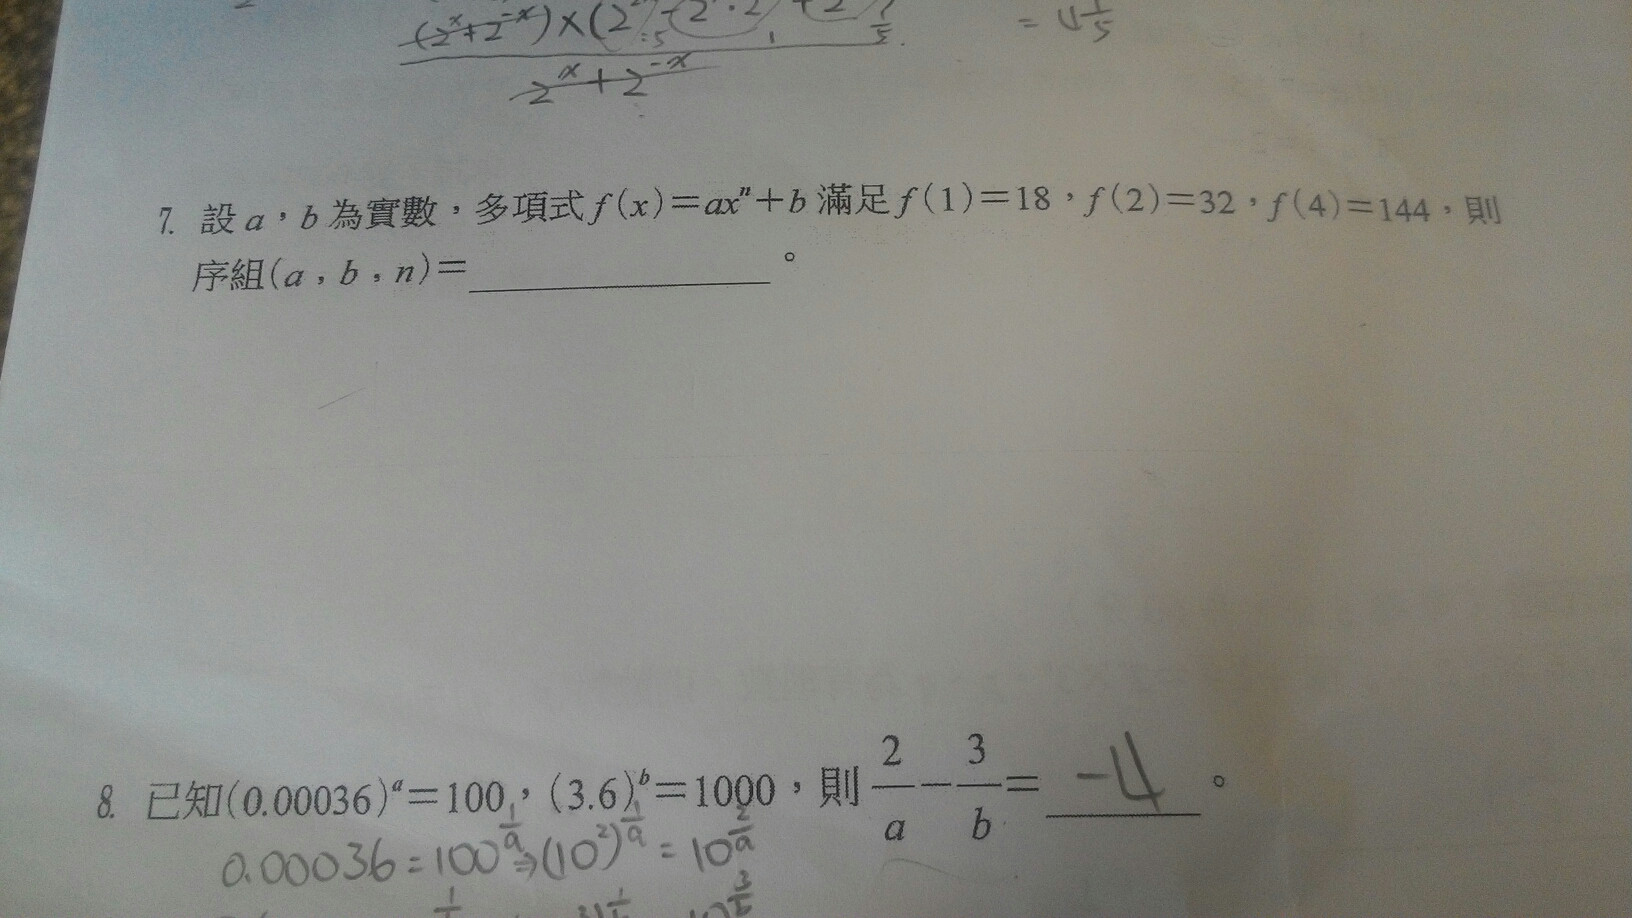 (2^x+2^-x)×(2
=5
1
1/5
=4 1/5
2^x+2^-x
7. 設 a，b 為實數，多項式 f(x)=ax^n+b 滿足 f(1)=18，f(2)=32，f(4)=144，則
序組(a，b，n)=__________。
8. 已知(0.00036)^a=100，(3.6)^b=1000，則 2/a − 3/b = -4 。
0.00036=100^(1/a)⇒(10^2)^(1/a)=10^(2/a)